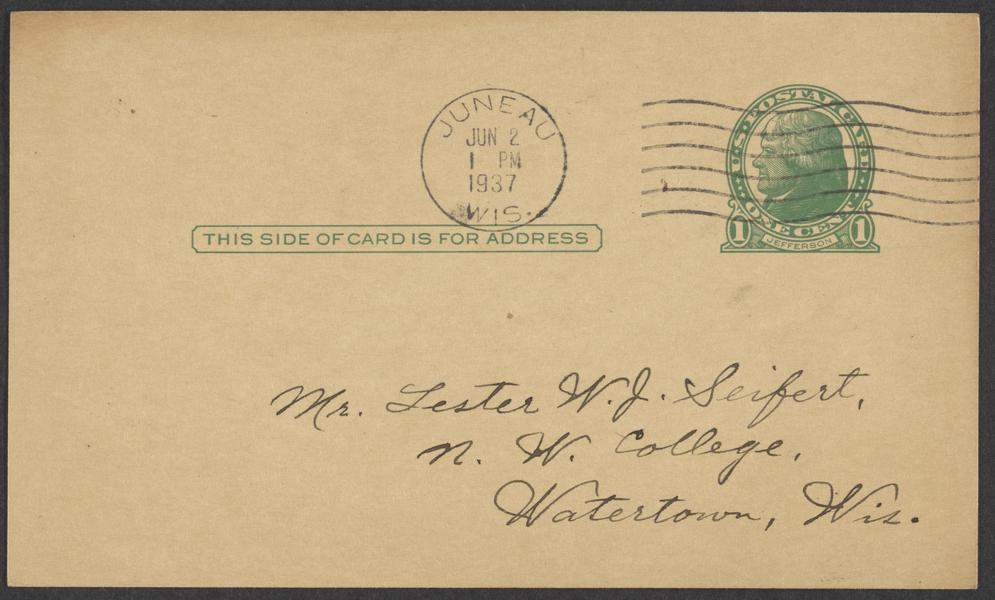 JUNEAU
JUN 2
1 PM
1937
WIS.
U.S. POSTAL CARD
ONE CENT
1 JEFFERSON 1
THIS SIDE OF CARD IS FOR ADDRESS
Mr. Lester W.J. Seifert,
N. W. College,
Watertown, Wis.